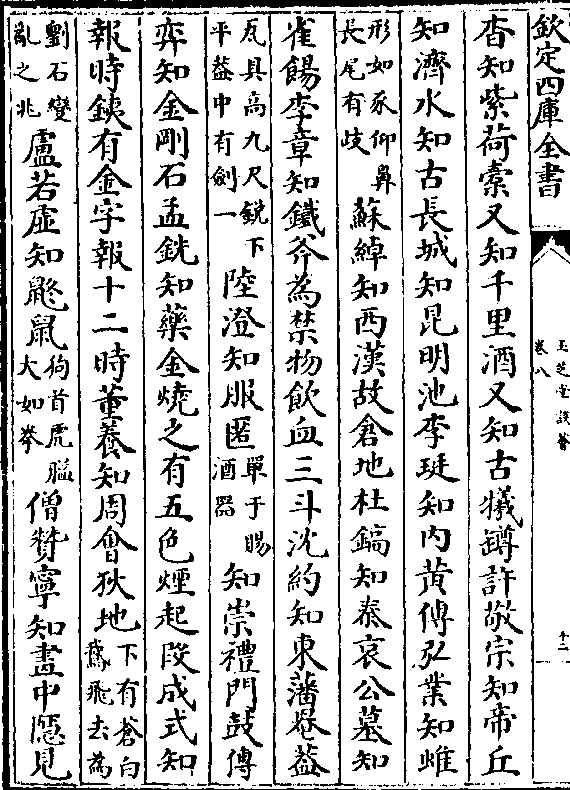 欽定四庫全書
玉芝堂談薈
卷八
十二
杳知紫荷橐又知千里酒又知古犧罇許敬宗知帝丘
知濟水知古長城知昆明池李珽知内黄傅弘業知雖
形如豕仰鼻
長尾有歧
蘇綽知西漢故倉地杜鎬知秦哀公墓知
雀餳李章知鐵斧為禁物飲血三斗沈約知東藩罨葢
瓦具高九尺鋭下
平葢中有劍一
陸澄知服匿
單于賜
酒器
知崇禮門鼓傅
弈知金剛石孟銑知藥金燒之有五色煙起段成式知
報時鐵有金字報十二時董養知周會狄地
下有蒼白
鵞飛去為
劉石變
亂之兆
盧若虚知鼨鼠
狗首虎臆
大如拳
僧贊寧知畫中隱見